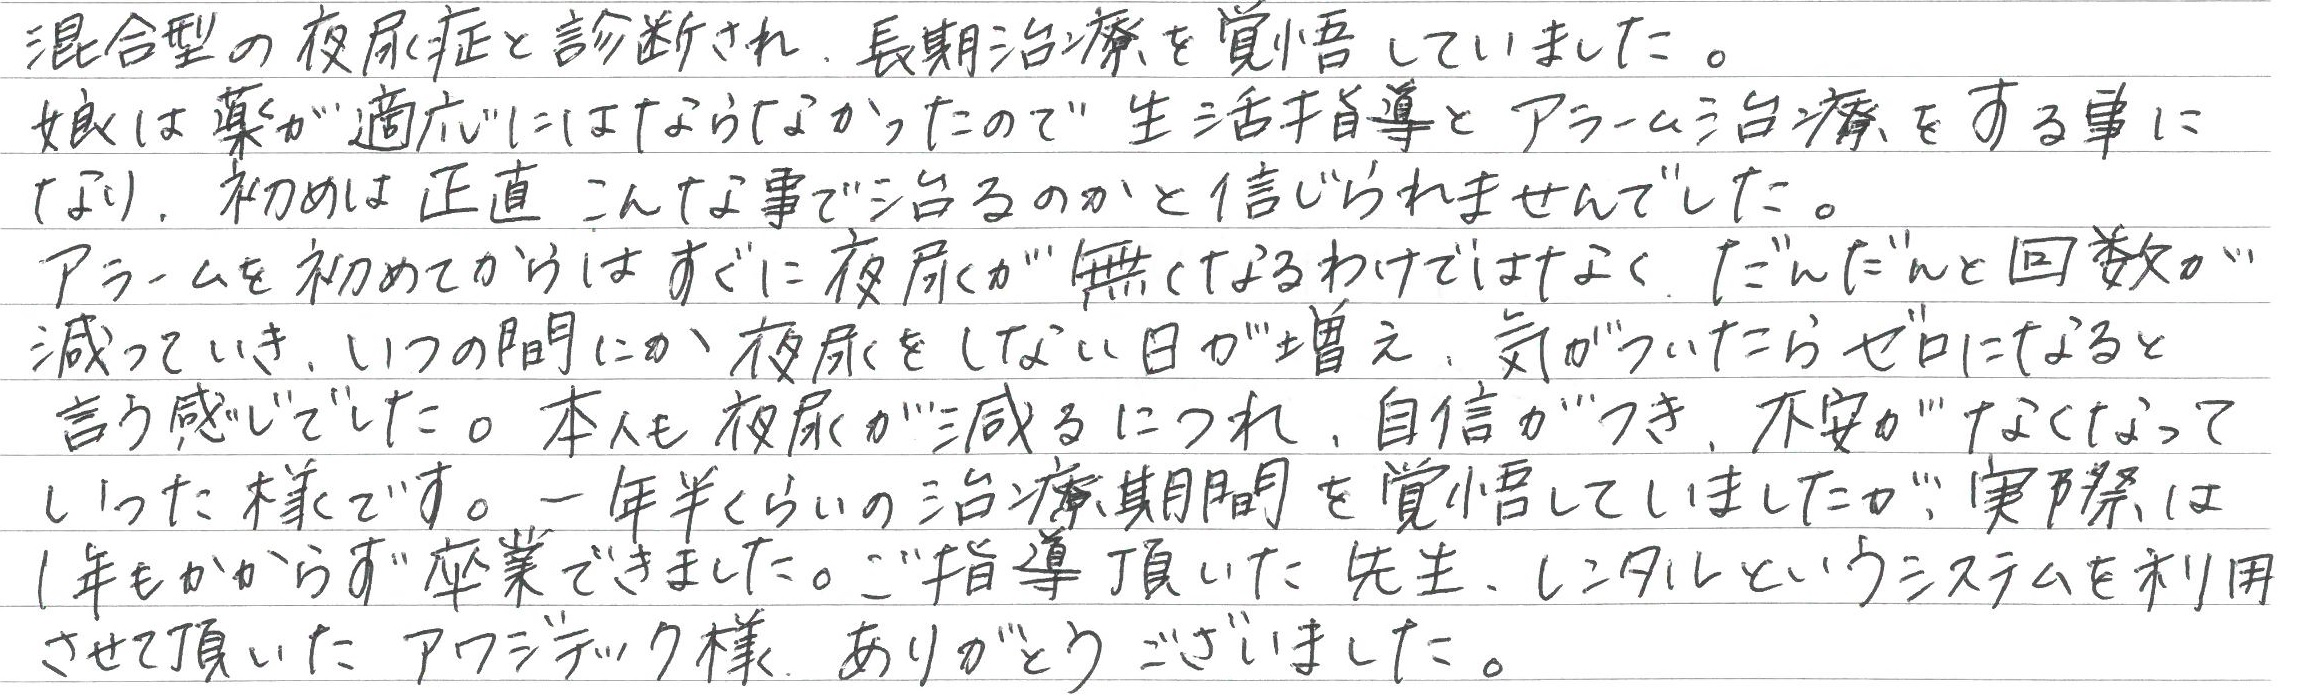 混合型の夜尿症と診断され、長期治療を覚悟していました。
娘は薬が適応にはならなかったので生活指導とアラーム治療をする事に
なり、初めは正直こんな事で治るのかと信じられませんでした。
アラームを初めてからはすぐに夜尿が無くなるわけではなく、だんだんと回数が
減っていき、いつの間にか夜尿をしない日が増え、気がついたらゼロになると
言う感じでした。本人も夜尿が減るにつれ、自信がつき、不安がなくなって
いった様です。一年半くらいの治療期間を覚悟していましたが、実際は
1年もかからず卒業できました。ご指導頂いた先生、レンタルというシステムを利用
させて頂いたアワジテック様、ありがとうございました。